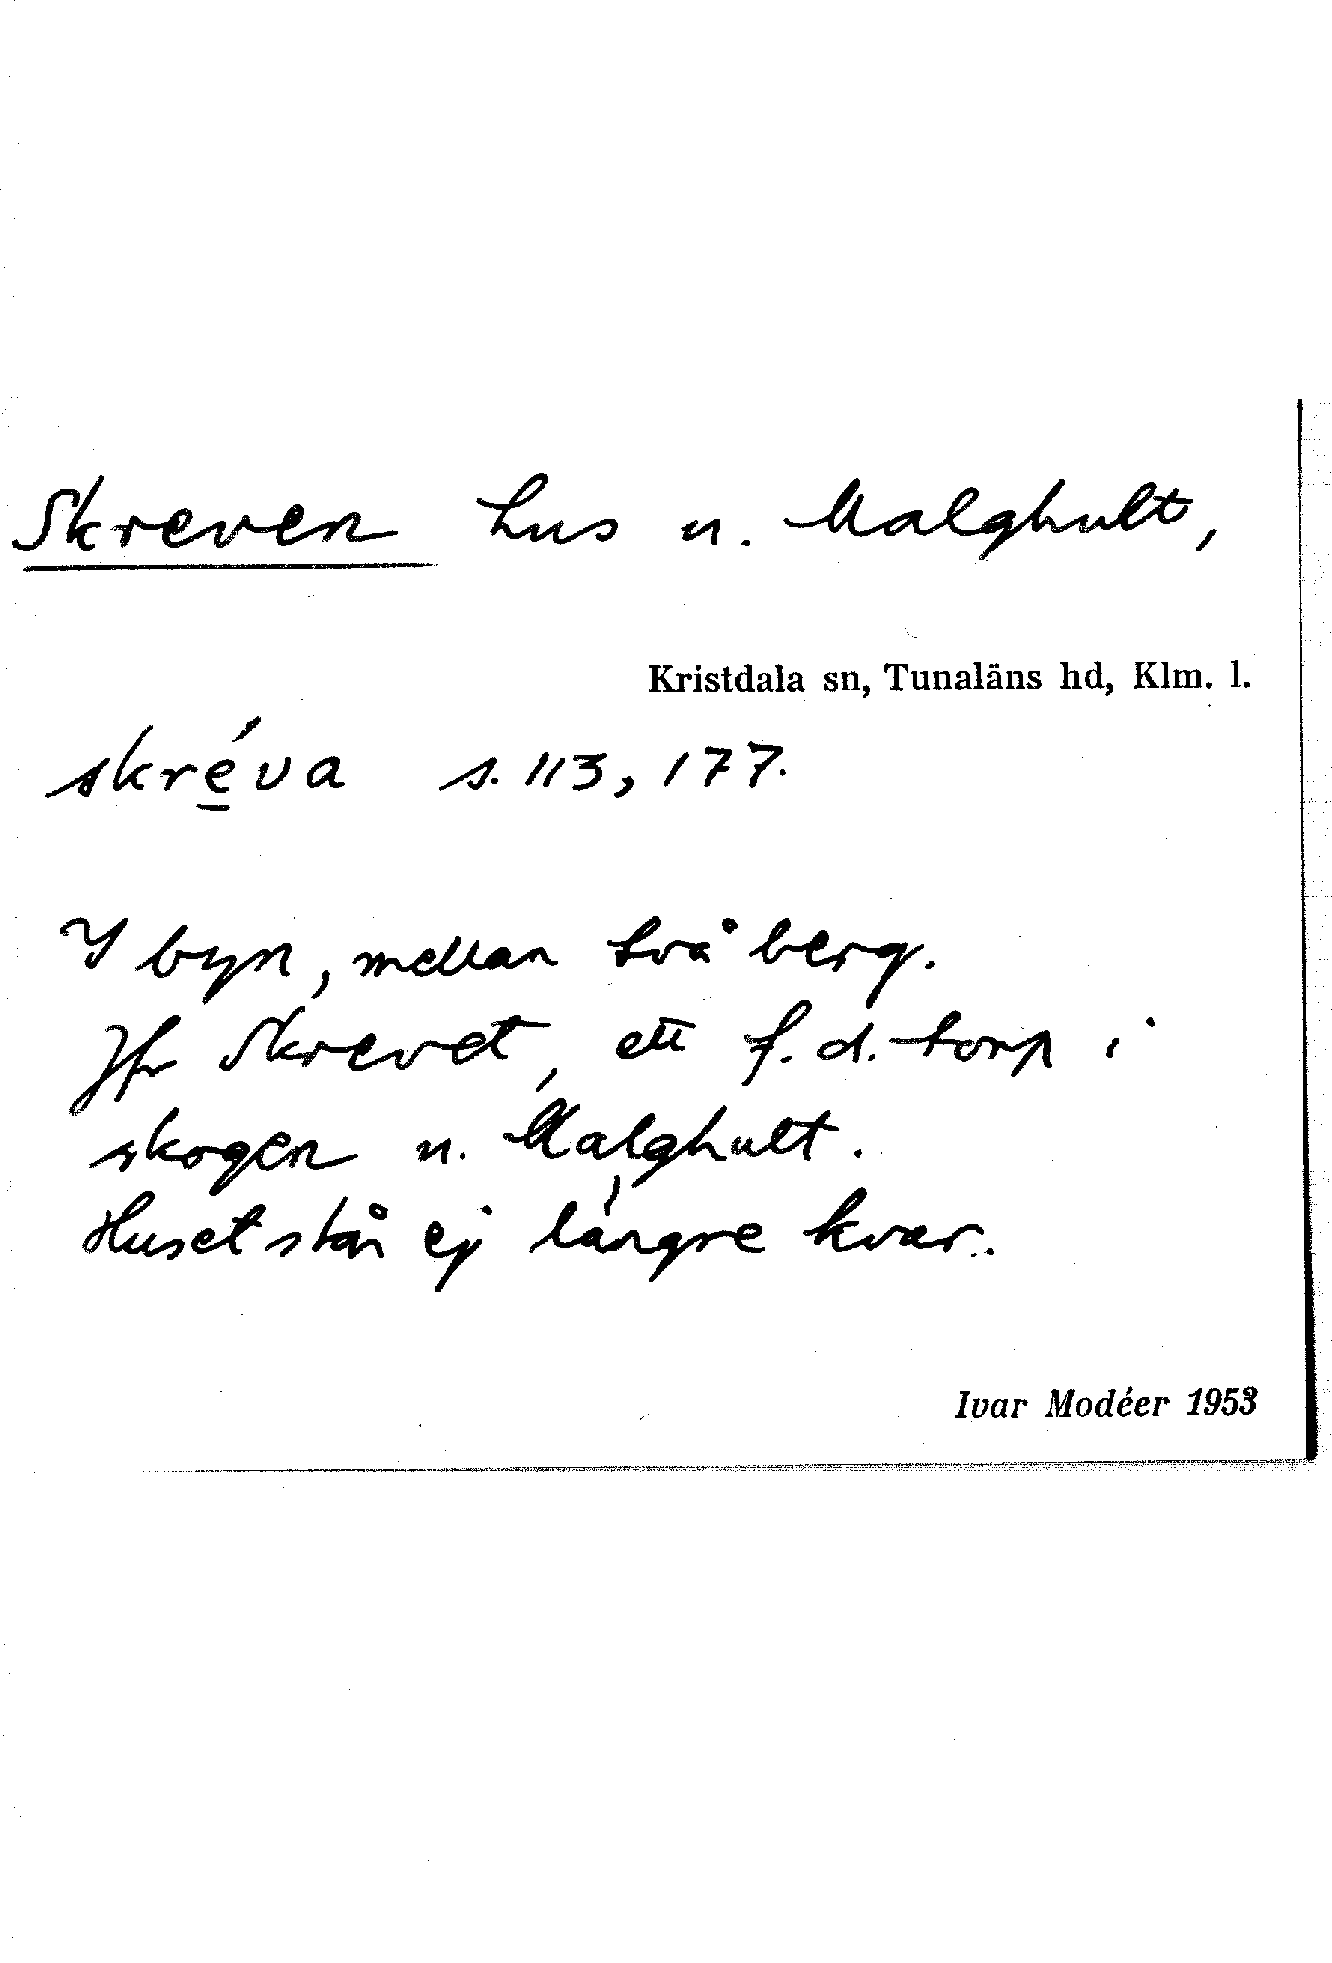 Skreven hus u. Malghult,
Kristdala sn, Tunaläns hd, Klm. l.
skré̲va s. 113, 177.
I byn, mellan två berg.
Jfr Skrevet, ett f.d. torp i
skogen u. Malghult.
Huset står ej längre kvar.
Ivar Modéer 1953